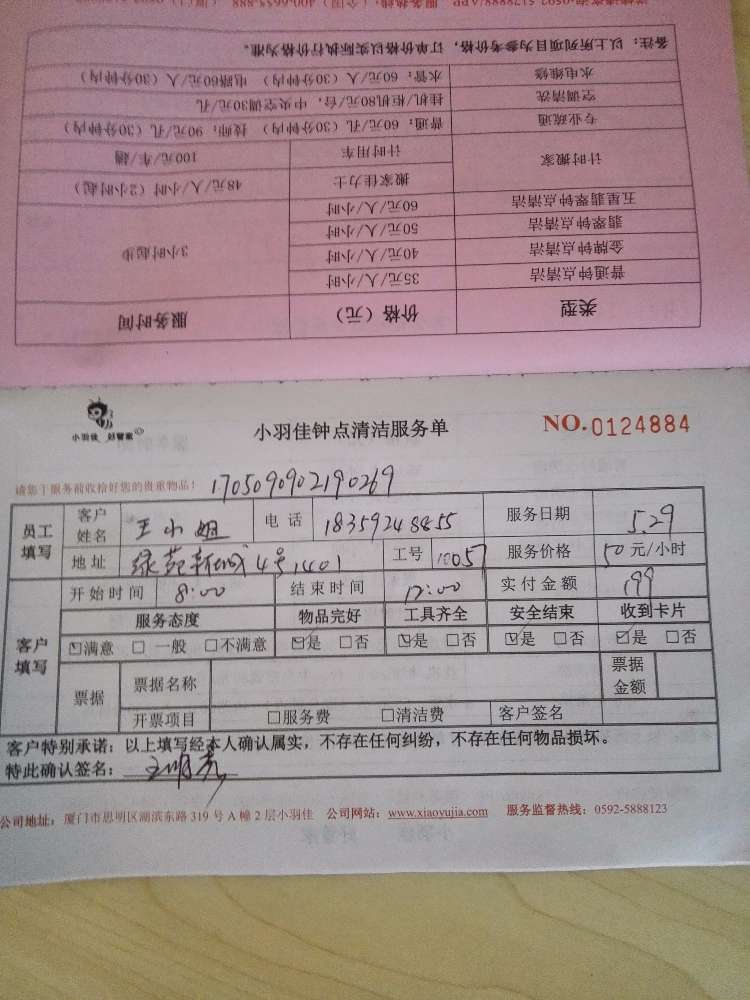 详情请咨询：0592-5178888/APP 服务热线：（全国）400-6655-888（厦门）
备注：以上所列项目为参考价格，订单价格以实际执行价格为准。
水电维修 水管：60元/人（30分钟内） 电路60元/人（30分钟内）
空调清洗 挂机/柜机80元/台，中央空调30元/孔
专业疏通 普通：60元/孔（30分钟内） 技师：90元/孔（30分钟内）
计时搬家 计时用车 100元/车/趟
搬家佳力士 48元/人/小时（2小时起）
五星翡翠钟点清洁 60元/人/小时
翡翠钟点清洁 50元/人/小时 3小时起步
金牌钟点清洁 40元/人/小时
普通钟点清洁 35元/人/小时
类型 价格（元） 服务时间
小羽佳 好管家
小羽佳钟点清洁服务单 NO.0124884
请您于服务前收拾好您的贵重物品！ 1705090902190269
员工填写 客户姓名 王小姐 电话 18359248855 服务日期 5.29
地址 绿苑新城4号1401 工号 10057 服务价格 50元/小时
客户填写 开始时间 8:00 结束时间 12:00 实付金额 199
服务态度 物品完好 工具齐全 安全结束 收到卡片
☑满意 □一般 □不满意 ☑是 □否 ☑是 □否 ☑是 □否 ☑是 □否
票据 票据名称 票据金额
开票项目 □服务费 □清洁费 客户签名
客户特别承诺：以上填写经本人确认属实，不存在任何纠纷，不存在任何物品损坏。
特此确认签名：
公司地址：厦门市思明区湖滨东路319号A幢2层小羽佳 公司网站：www.xiaoyujia.com 服务监督热线：0592-5888123